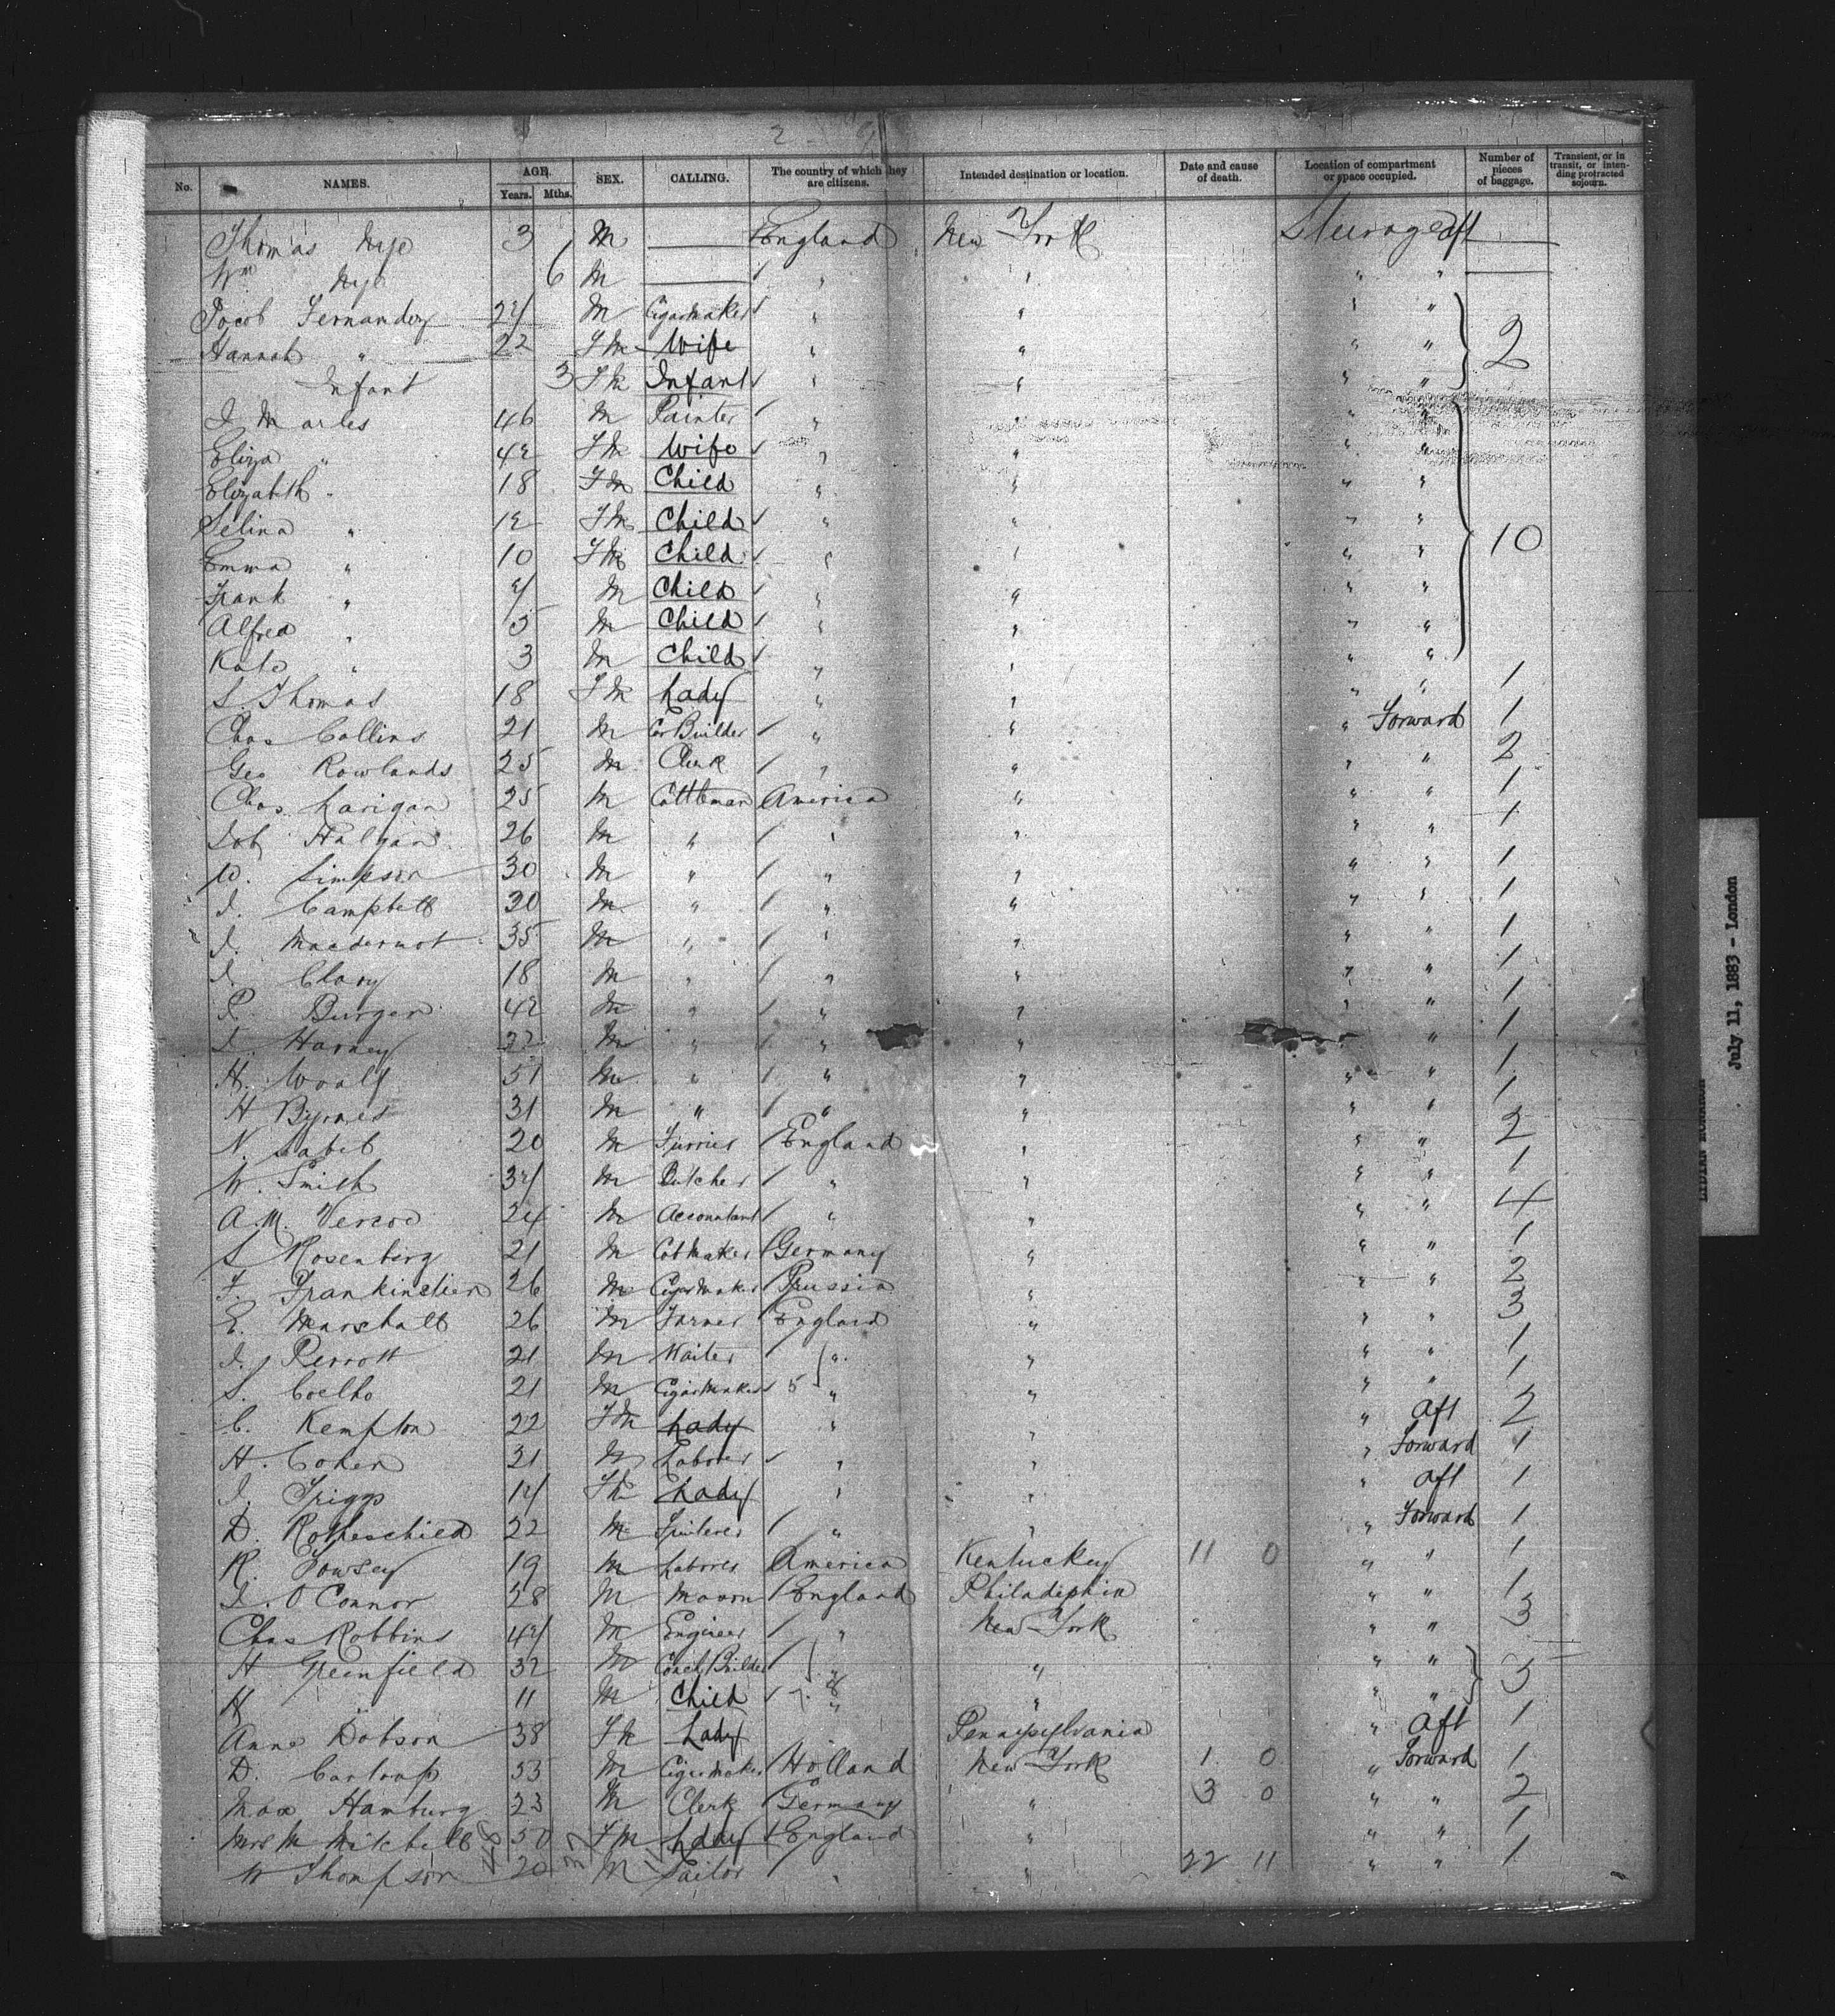 No. NAMES. AGE. Years. Mths. SEX. CALLING. The country of which they are citizens. Intended destination or location. Date and cause of death. Location of compartment or space occupied. Number of pieces of baggage. Transient, or in transit, or intending protracted sojourn.
Thomas Nye 3 M — England New York Steerage aft —
Wm Nye 6 M — " " " " —
Jacob Fernandez 27 M Cigarmaker " " " "
Hannah " 22 Fm Wife " " " " 2
Infant 3 Fm Infant " " " "
J Marles 46 M Painter " " " "
Eliza " 42 Fm Wife " " " "
Elizabeth " 18 Fm Child " " " "
Selina " 12 Fm Child " " " "
Emma " 10 Fm Child " " " " 10
Frank " 7 M Child " " " "
Alfred " 5 M Child " " " "
Kate " 3 M Child " " " "
S. Thomas 18 Fm Lady " " " " 1
Chas Collins 21 M Car Builder " " " Forward 1
Geo Rowlands 25 M Clerk " " " " 2
Chas Larigan 25 M Cattleman America " " " 1
Job Halgan 26 M " " " " " 1
W. Simpson 30 M " " " " " 1
J. Campbell 30 M " " " " " 1
J. Macdermot 35 M " " " " " 1
J. Clary 18 M " " " " " 1
P. Burger 42 M " " " " " 1
J. Harney 22 M " " " " 1
H. Woolf 51 M " " " " " 1
H Byrnes 31 M " " " " " 1
N. Sabel 20 M Furrier England " " " 2
W. Smith 37 M Butcher " " " " 1
A.M. Vercoe 24 M Accountant " " " " 4
S Rosenberg 21 M Germany " " " 1
F. Frankinstien 26 M Cigarmaker Prussia " " " 2
E. Marshall 26 M England " " " 3
J. Perrott 21 M Waiter " " " " 1
S. Coelho 21 M Cigarmaker 5 " " " " 1
C. Kempton 22 Fm Lady " " " aft 2
H. Cohen 21 M Laborer " " " Forward 1
J. Triggs 17 Fm Lady " " " aft 1
D. Rotheschild 22 M " " " Forward 1
R. Towsey 19 M Laborer America Kentucky 11 0 " " 1
J. O'Connor 28 M Mason England Philadephia " " 1
Chas Robbins 47 M Engineer " New York " " 3
H Greenfield 32 M Coach Builder " " " "
H " 11 M Child " " " " 3
Anne Dobson 38 Fm Lady Pennsylvania " aft 1
D. 53 M Cigarmaker Holland New York 1 0 " Forward 1
Max Hamburg 23 M Clerk Germany " 3 0 " " 2
Mrs M Mitchell 50 Fm Lady England " " " 1
W Thompson 20 M Sailor " " 22 11 " " 1
LYDIAN MONARCH
July 11, 1883 - London